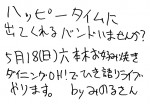 ハッピータイムに
出てくれるバンドいませんか?
5月18(日)六本木お好み焼き
ダイニングOH!でひき語りライブ
やります。 byみのるさん